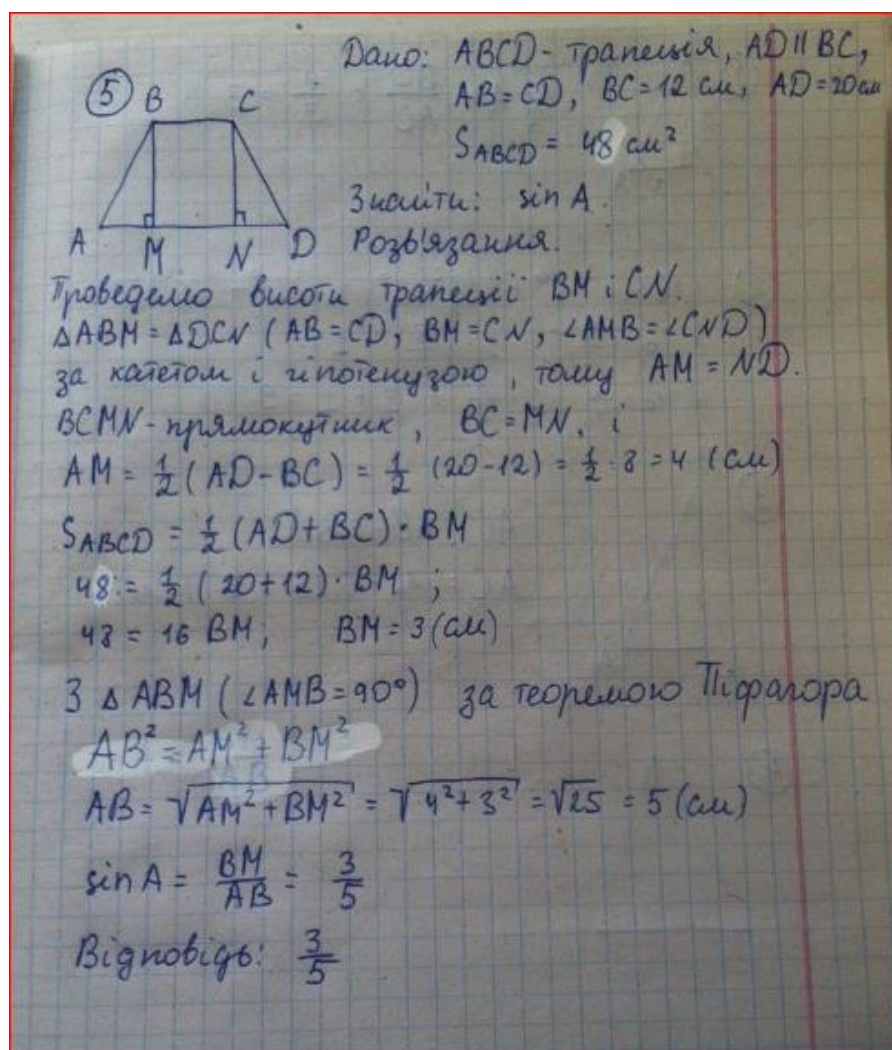 Дано: ABCD - трапеція, AD || BC,
AB = CD, BC = 12 см, AD = 20 см
S_ABCD = 48 см²
Знайти: sin A.
Розв'язання.
5
B C
A M N D
Проведемо висоти трапеції BM і CN.
ΔABM = ΔDCN (AB = CD, BM = CN, ∠AMB = ∠CND)
за катетом і гіпотенузою, тому AM = ND.
BCMN - прямокутник, BC = MN, і
AM = 1/2 (AD - BC) = 1/2 (20 - 12) = 1/2 · 8 = 4 (см)
S_ABCD = 1/2 (AD + BC) · BM
48 = 1/2 (20 + 12) · BM ;
48 = 16 BM; BM = 3 (см)
З Δ ABM (∠AMB = 90°) за теоремою Піфагора
AB² = AM² + BM²
AB = √(AM² + BM²) = √(4² + 3²) = √25 = 5 (см)
sin A = BM/AB = 3/5
Відповідь: 3/5